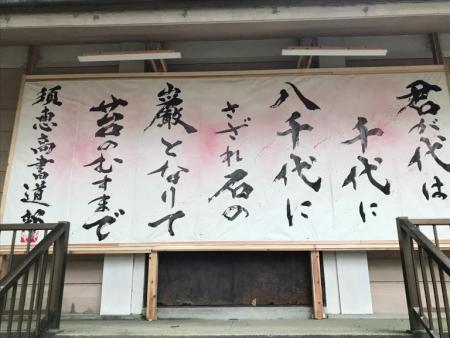 君が代は
千代に
八千代に
さざれ石の
巌となりて
苔のむすまで
須恵高書道部